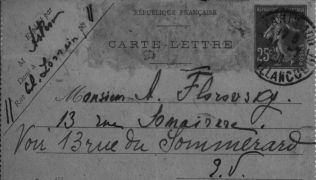 RÉPUBLIQUE FRANÇAISE
CARTE-LETTRE
M
Rue Cl. Lorrain N° 11
25c
BILLANCOURT
Monsieur A. Florovsky.
13 rue
Voir 13 rue du Sommerard
E.V.